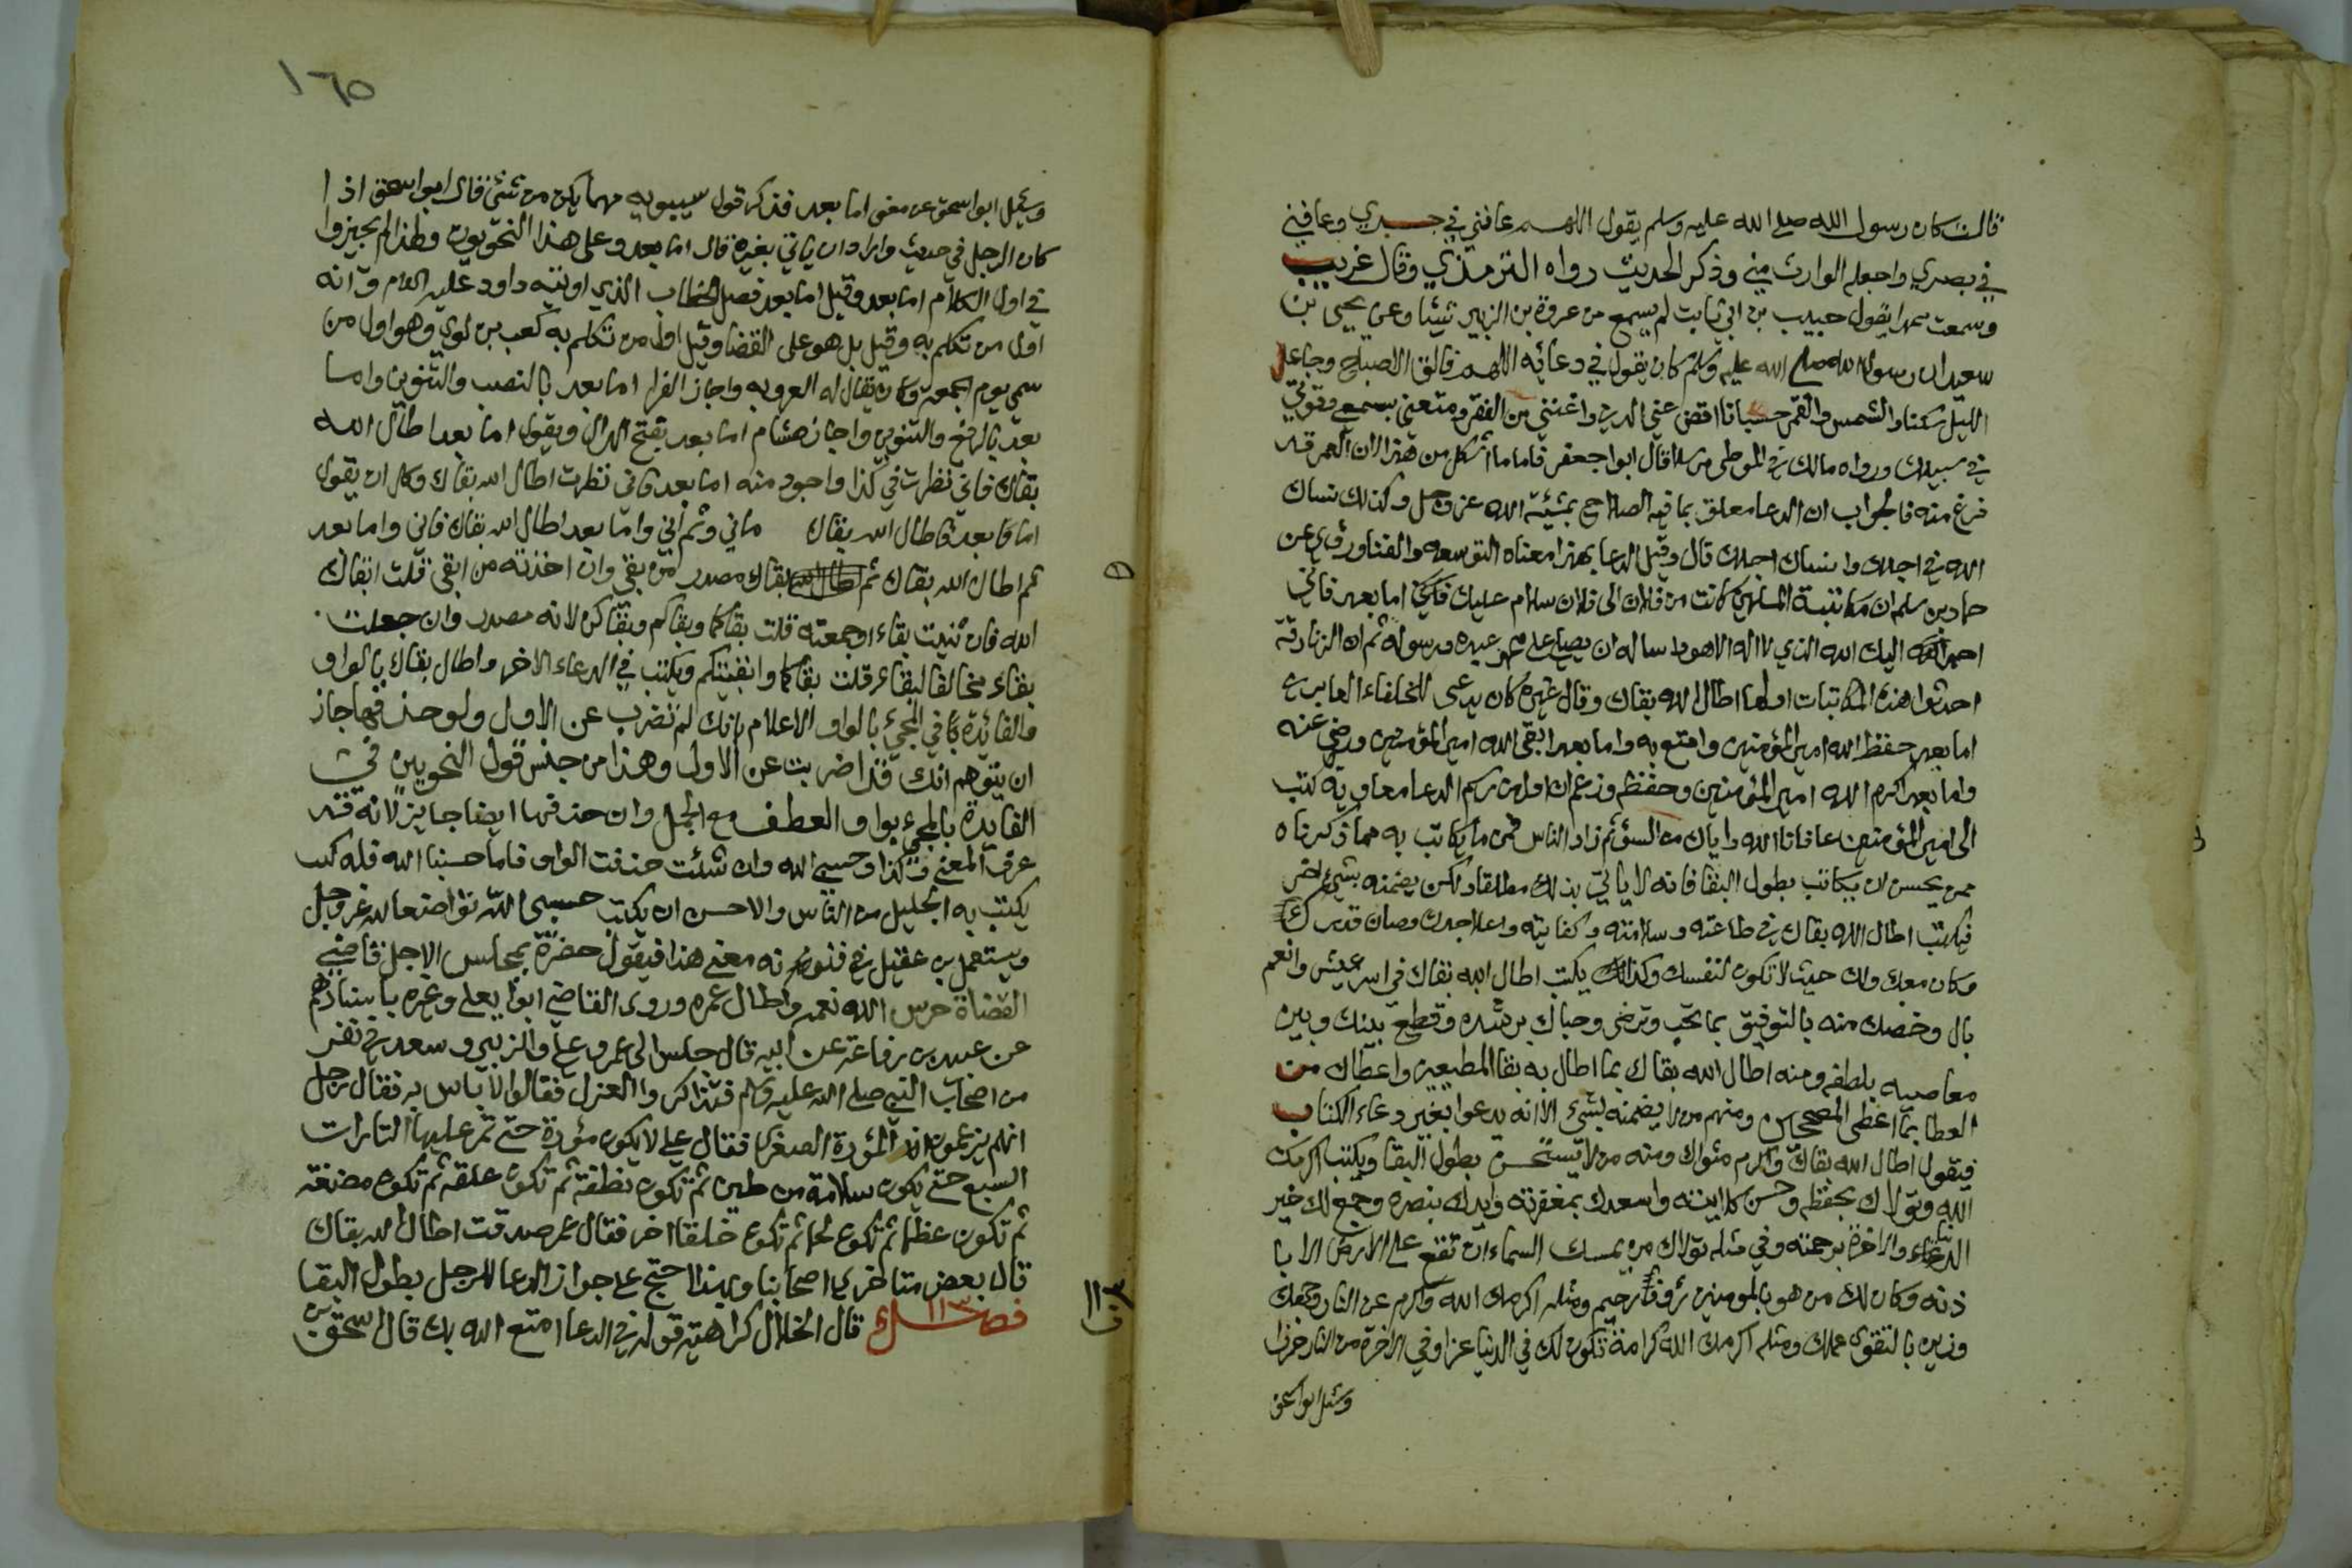 قالت كان رسول الله صلى الله عليه وسلم يقول اللهم عافني في جسدي وعافني
في بصري واجعله الوارث مني وذكر الحديث رواه الترمذي وقال غريب
وسمعت محمدا يقول حبيب بن ابي ثابت لم يسمع من عروة بن الزبير شيئا وعن يحيى بن
سعيد ان رسول الله صلى الله عليه وسلم كان يقول في دعائه اللهم فالق الاصباح وجاعل
الليل سكنا والشمس والقمر حسبانا اقض عني الدين واغنني من الفقر ومتعني بسمعي وقوتي
في سبيلك ورواه مالك في الموطى مرسلا قال ابو جعفر فاما ما اشكل من هذا ان العمر قد
فرغ منه فالجواب ان الدعا معلق بما فيه الصلاح بمشيئة الله عز وجل وكذلك نساك
الله في اجلك وانساك اجلك قال وقيل الدعا بهذا معناه التوسعه والغنا وروي عن
حماد بن سلمه ان مكاتبة المسلمين كانت من فلان الى فلان سلام عليك اما بعد فاني
احمد اليك الله الذي لا اله الا هو واساله ان يصلي على محمد عبده ورسوله ثم ان الزنادقة
احدثوا هذه المكاتبات اولها اطال الله بقاك وقال غيره كان يدعى للخلفاء الغابرين
اما بعد حفظ الله امير المؤمنين وامتع به واما بعد ابقى الله امير المؤمنين ورضي عنه
واما بعد اكرم الله امير المؤمنين وحفظه وزعم ان اول من رسم الدعا معاوية كتب
الى امير المؤمنين عافانا الله واياك من السوء ثم زاد الناس فمن ما يكاتب به مما ذكرناه
ممن يحسن ان يكاتب بطول البقا فانه لا ياتي بذلك مطلقا ولكن يضمنه بشيء اخر
فيكتب اطال الله بقاك في طاعته وسلامته وكفايته واعلا جدك وصان قدرك
وكان معك ولك حيث لا تكون لنفسك وكذلك يكتب اطال الله بقاك في اسر عيش وانعم
بال وخصك منه بالتوفيق بما تحب وترضى وحباك برشده وقطع بينك وبين
معاصيه بلطفه ومنه اطال الله بقاك بما اطال به بقا المطيعين واعطاك من
العطا بما اعطى الصالحين ومنهم من لا يضمنه بشيء الا انه يدعوا بغير دعاء الكتاب
فيقول اطال الله بقاك واكرم مثواك ومنه من لا يستحسن بطول البقا ويكتب اكرمك
الله وتولاك بحفظه وحسن كلايته واسعدك بمغفرته وايدك بنصره وجمع لك خير
الدنيا والاخرة برحمته وفي مثله تولاك من يمسك السماء ان تقع على الارض الا با
ذنه وكان لك من هو بالمومنين رؤفا رحيم ومثله اكرمك الله واكرم عن النار وجهك
وزين بالتقوى عملك ومثله اكرمك الله كرامة تكون لك في الدنيا عزا وفي الاخرة من النار حرزا
وسئل ابو اسحق
١٦٥
وسئل ابو اسحق عن معنى اما بعد فذكر قول سيبويه مهما يكن من شئ قال ابو اسحق اذا
كان الرجل في حديث واراد ان ياتي بغيره قال اما بعد وعلى هذا النحويون ولهذا لم يجيزوا
في اول الكلام اما بعد وقيل اما بعد فصل الخطاب الذي اوتيه داود عليه السلام وانه
اول من تكلم به وقيل بل هو على القضا وقيل اول من تكلم به كعب بن لوي وهو اول من
سمى يوم الجمعة وكان يقال له العروبه واجاز الفرا اما بعد بالنصب والتنوين واما
بعد بالرفع والتنوين واجاز هشام اما بعد بفتح الدال ويقول اما بعد اطال الله
بقاك فاني نظرت في كذا واجود منه اما بعد فاني نظرت اطال الله بقاك وكان ان يقول
اما فابعد فاطال الله بقاك فاني وثم اني واما بعد اطال الله بقاك فاني واما بعد
ثم اطال الله بقاك ثم بقاك مصدر من بقي وان اخذته من ابقى قلت ابقاك
الله فان ثنيت بقاء اوجمعته قلت بقاكما وبقاكم وبقاكن لانه مصدر وان جعلت
بقاء مخالفا لبقاء قلت بقاكما وابقيتكم ويكتب في الدعاء الاخر واطال بقاك بالواو
والفائدة في المجيء بالواو الاعلام بانك لم تضرب عن الاول ولو حذفها جاز
ان يتوهم انك قد اضربت عن الاول وهذا من جنس قول النحويين في
الفايدة بالمجيء بواو العطف مع الجمل وان حذفها ايضا جايز لانه قد
عرف المعنى وكذا وحسبي الله وان شئت حذفت الواو فاما حسبنا الله فله كتب
يكتب به الجليل من الناس والاحسن ان يكتب حسبي الله تواضعا لله عز وجل
ويستعمل بن عقيل في فنونه معنى هذا فيقول حضرة بمجلس الاجل قاضي
القضاة حرس الله نعمه واطال عمره وروى القاضي ابو يعلى وغيره باسنادهم
عن عبيد بن رفاعة عن ابيه قال جلس الى عمر وعلي والزبير وسعد في نفر
من اصحاب النبي صلى الله عليه وسلم فتذاكروا العزل فقالوا لا باس به فقال رجل
انهم يزعمون انها المؤدة الصغرى فقال علي لا يكون مؤدة حتى تمر عليها التارات
السبع حتى يكون سلالة من طين ثم تكون نطفة ثم تكون علقة ثم تكون مضغة
ثم تكون عظما ثم تكون لحما ثم تكون خلقا اخر فقال عمر صدقت اطال الله بقاك
قال بعض متاخري اصحابنا وبهذا احتج على جواز الدعا للرجل بطول البقا
فصل ١١٣ قال الخلال كراهته قوله في الدعا امتع الله بك قال اسحق بن
١١٣
ف